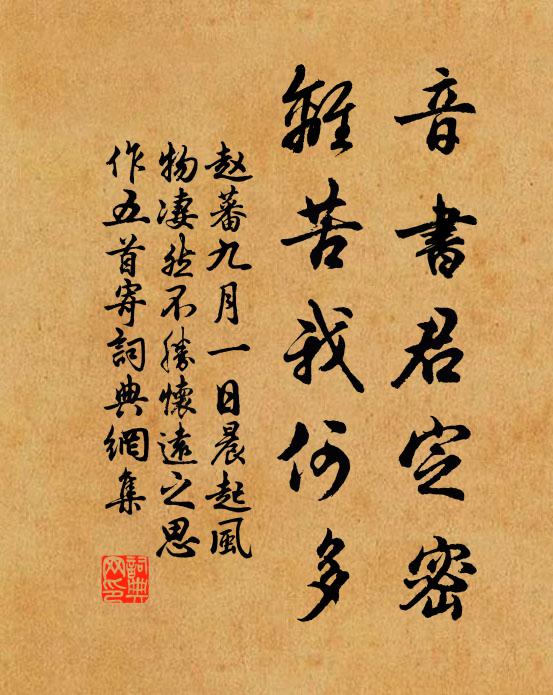 音書君定密
離苦我何多
赵蕃九月一日晨起風
物凄然不勝懷遠之思
作五首寄詞典網集
詞典网印